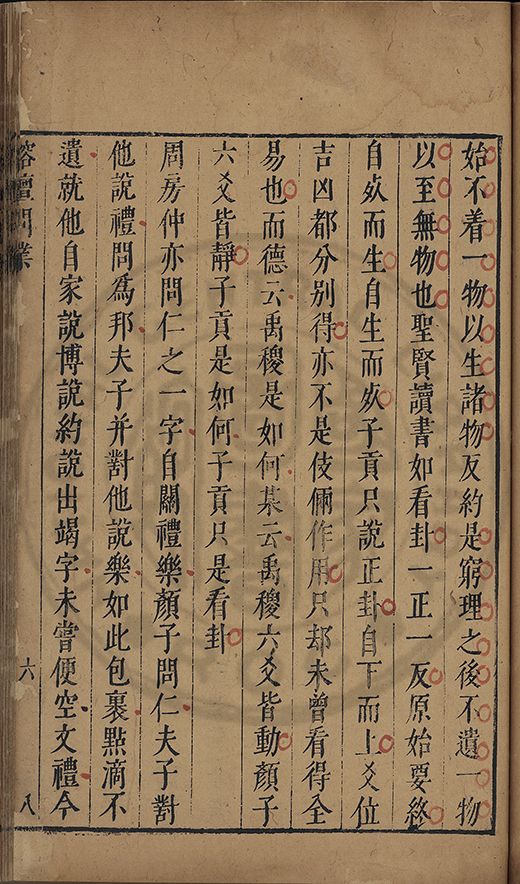 始不着一物以生諸物反約是窮理之後不遺一物
以至無物也聖賢讀書如看卦一正一反原始要終
自㱙而生自生而㱙子貢只說正卦自下而上爻位
吉凶都分別得亦不是伎倆作用只却未曾看得全
易也而德云禹稷是如何某云禹稷六爻皆動顏子
六爻皆靜子貢是如何子貢只是看卦
周房仲亦問仁之一字自關禮樂顏子問仁夫子對
他說禮問為邦夫子并對他說樂如此包裹點滴不
遺就他自家說博說約說出竭字未嘗便空文禮今
榕壇問業
六
八